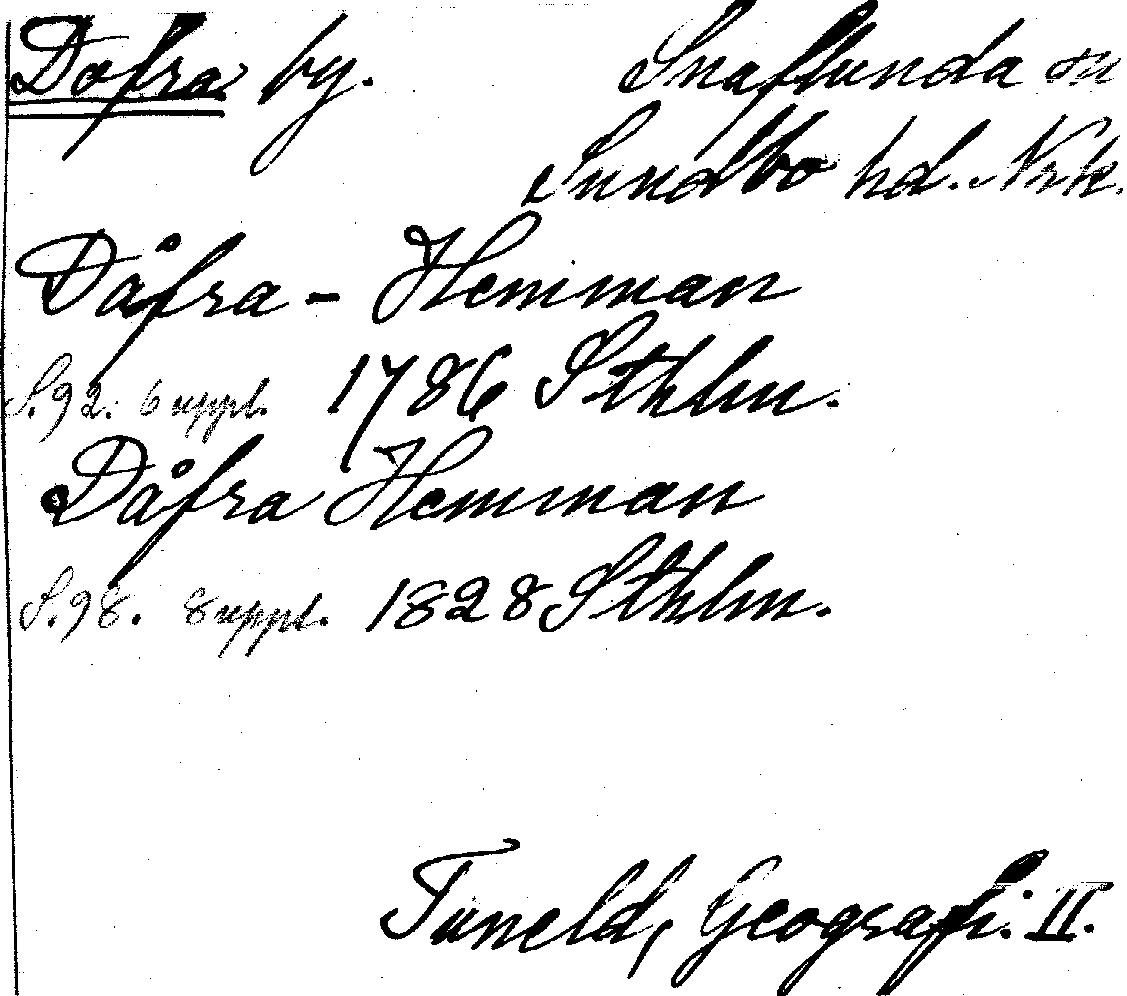 Dofra by. Snaflunda sn
Sundbo hd. Nrk.
Dåfra - Hemman
S.92. 6 uppl. 1786 Sthlm.
Dåfra Hemman
S.98. 8 uppl. 1828 Sthlm.
Tuneld, Geografi. II.